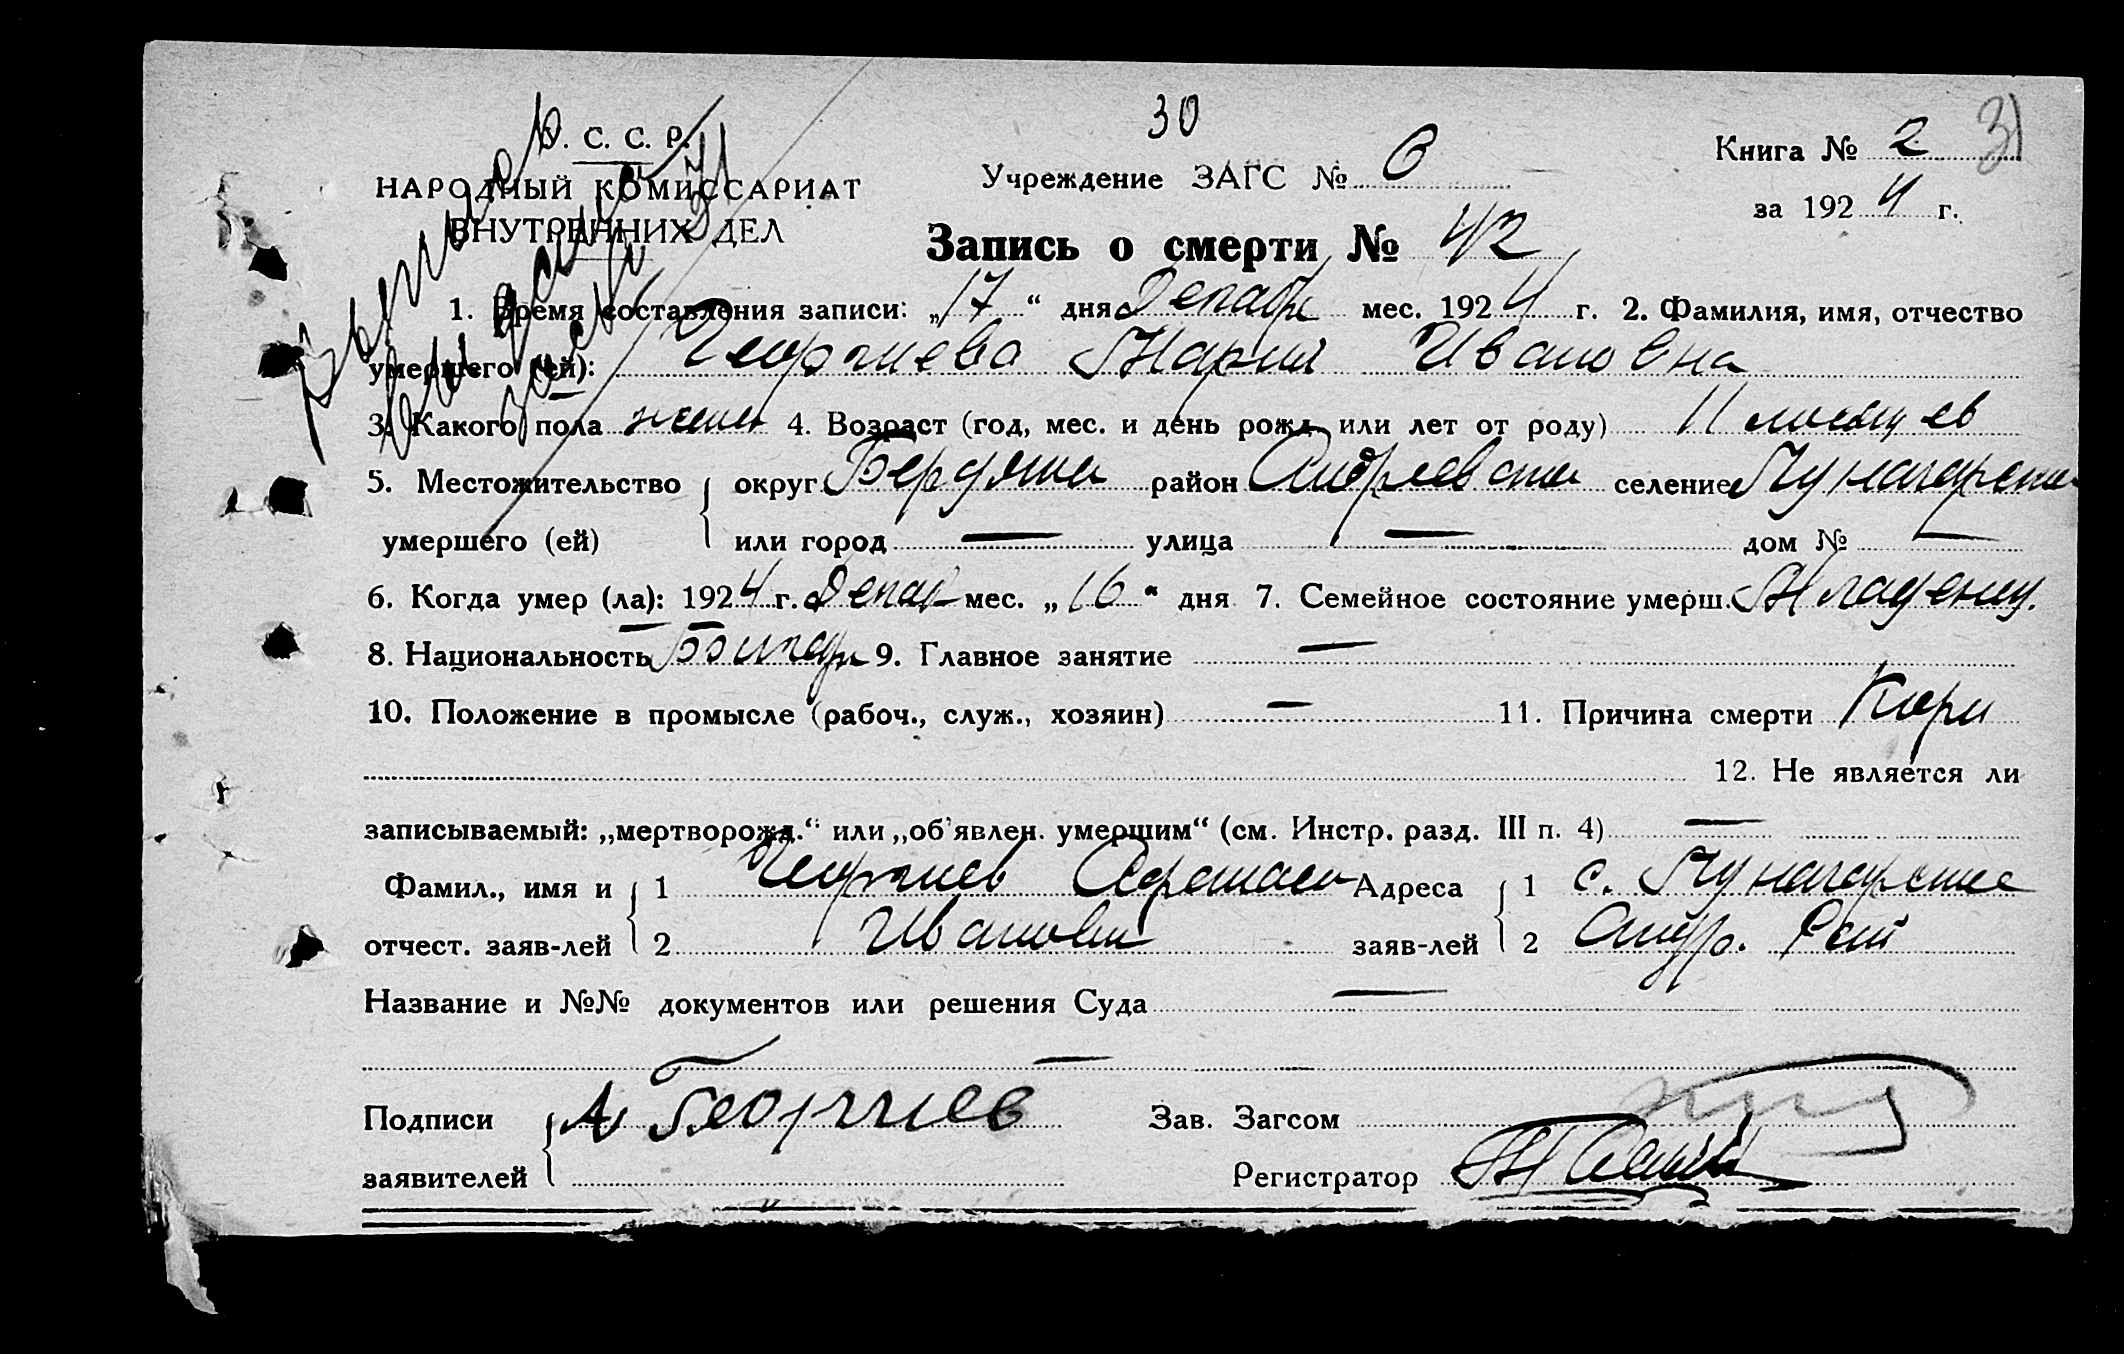 30
31
У. С. С. Р.
НАРОДНЫЙ КОМИССАРИАТ
ВНУТРЕННИХ ДЕЛ
Учреждение ЗАГС № 6
Книга № 2
за 1924 г.
Запись о смерти № 42
1. Время составления записи: „17“ дня Декабр мес. 1924 г. 2. Фамилия, имя, отчество
умершего (ей): Георгиева Мария Ивановна
3. Какого пола жен 4. Возраст (год, мес. и день рожд. или лет от роду) 11 месяцев
5. Местожительство округ Бердянск район Андреевски селение
умершего (ей) или город — улица — дом № —
6. Когда умер (ла): 1924 г. Декаб мес. „16“ дня 7. Семейное состояние умерш. Младенец.
8. Национальность Болгар 9. Главное занятие —
10. Положение в промысле (рабоч., служ., хозяин) — 11. Причина смерти Кори
12. Не является ли
записываемый: „мертворожд.“ или „об'явлен. умершим“ (см. Инстр. разд. III п. 4) —
Фамил., имя и 1 Георгиев Адреса 1 с.
отчест. заяв-лей 2 Иванович заяв-лей 2 Андр.
Название и №№ документов или решения Суда —
—
Подписи А Георгиев Зав. Загсом
заявителей Регистратор